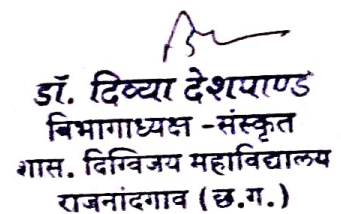 डॉ. दिव्या देशपाण्ड
बिभागाध्यक्ष - संस्कृत
शास. दिग्विजय महाविद्यालय
राजनांदगाव (छ.ग.)